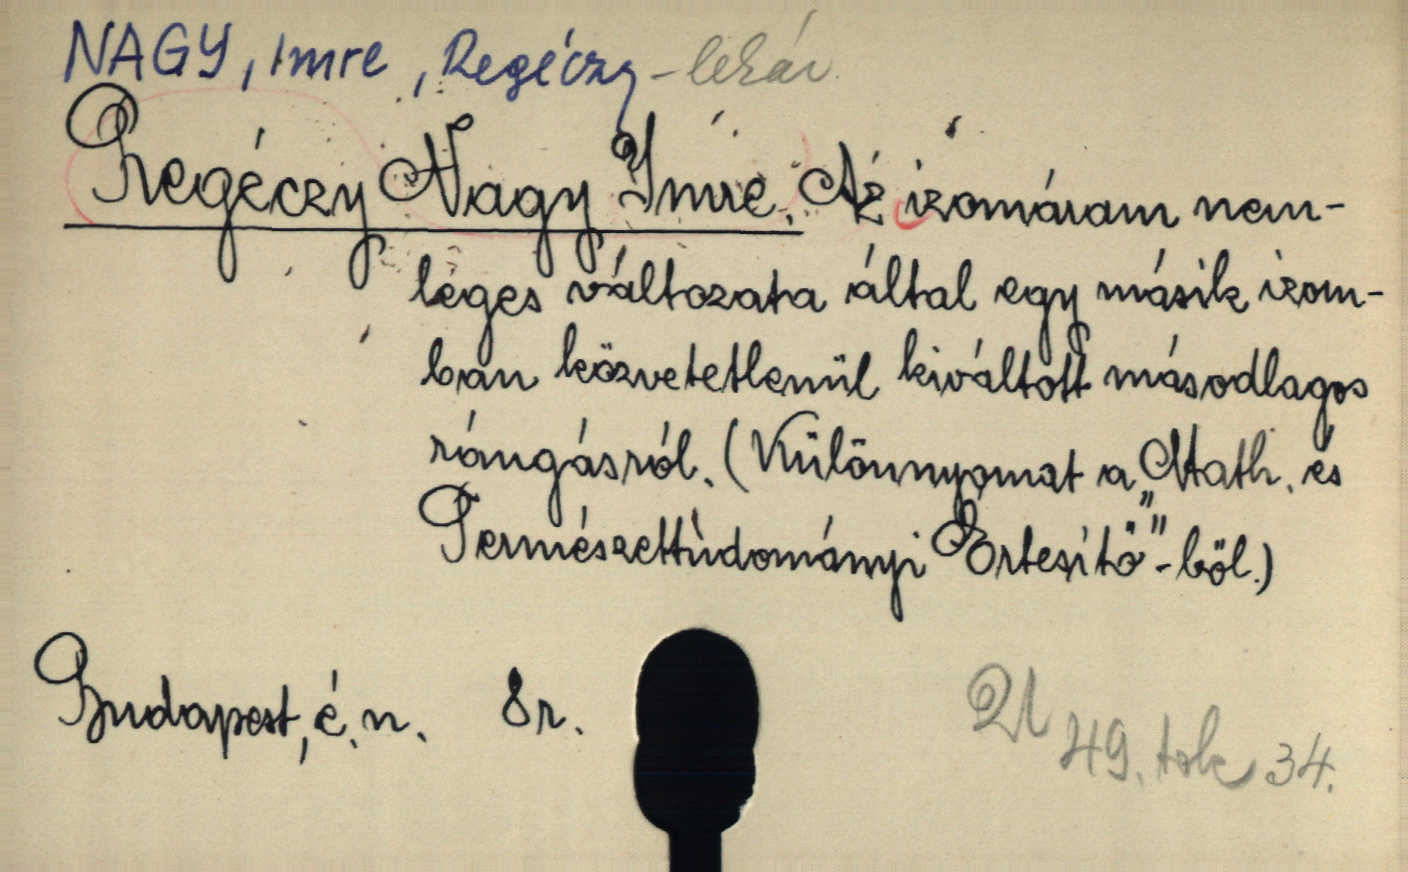 NAGY, Imre, Regéczy
Regéczy Nagy Imre. Az izomáram nem-
leges változata által egy másik izom-
ban közvetetlenül kiváltott másodlagos
rángásról. (Különnyomat a „Math. és
Természettudományi Értesítő"-ből.)
Budapest, é. n. 8r.
49. tok 34.